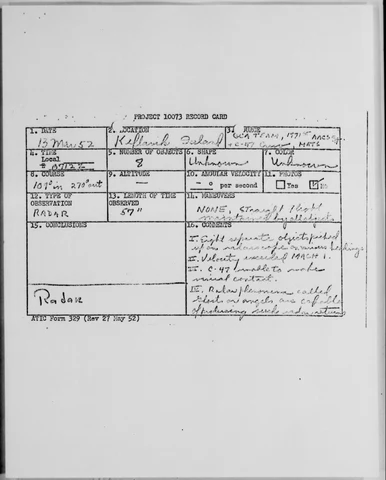 PROJECT 10073 RECORD CARD
1. DATE
13 Mar 52
2. LOCATION
Keflavik Iceland
3.
GCA TEAM, 1971st AACS
+ C-47 Crew, MATS
4. TYPE
Local
5. NUMBER OF OBJECTS
8
6. SHAPE
Unknown
7. COLOR
Unknown
8. COURSE
107° in 270° out
9. ALTITUDE
—
10. ANGULAR VELOCITY
- ° per second
11. PHOTOS
□ Yes
☑ No
12. TYPE OF
OBSERVATION
RADAR
13. LENGTH OF TIME
OBSERVED
57"
14. MANEUVERS
NONE, straight flight
maintained by all objects
15. CONCLUSIONS
Radar
16. COMMENTS
I. Eight separate objects picked
up on radar scope on various headings
II. Velocity exceeded MACH 1.
III. C-47 unable to make
visual contact.
IV. Radar phenomena called
ghosts or angels are capable
of producing such radar returns
ATIC Form 329 (Rev 27 May 52)